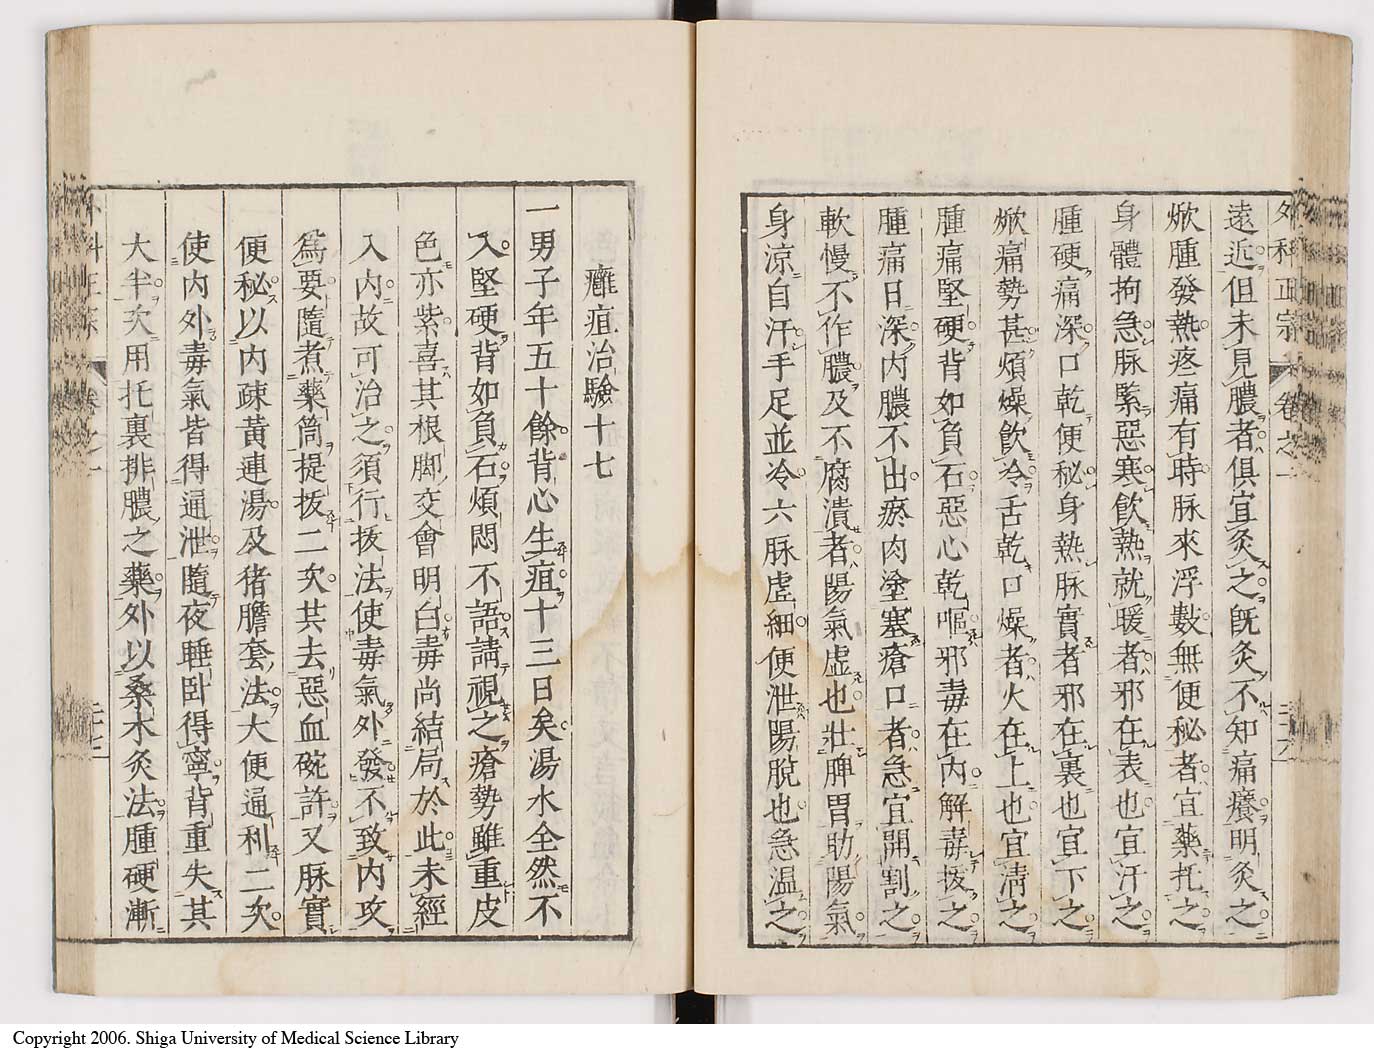 外科正宗 卷之一 二十六
遠近但未見膿者俱宜灸之既灸不知痛癢明灸之
焮腫發熱疼痛有時脉來浮數無便秘者宜藥托之
身體拘急脉緊惡寒飲熱就暖者邪在表也宜汗之
腫硬痛深口乾便秘身熱脉實者邪在裏也宜下之
焮痛勢甚煩燥飲冷舌乾口燥者火在上也宜清之
腫痛堅硬背如負石惡心乾嘔邪毒在內解毒拔之
腫痛日深內膿不出瘀肉塗塞瘡口者急宜開割之
軟慢不作膿及不腐潰者陽氣虛也壯脾胃助陽氣
身涼自汗手足並冷六脉虛細便泄陽脫也急溫之
癰疽治驗十七
一男子年五十餘背心生疽十三日矣湯水全然不
入堅硬背如負石煩悶不語請視之瘡勢雖重皮
色亦紫喜其根脚交會明白毒尚結局於此未經
入內故可治之須行拔法使毒氣外發不致內攻
爲要隨煮藥筒提拔二次共去惡血碗許又脉實
便秘以內疎黃連湯及猪膽套法大便通利二次
使內外毒氣皆得通泄隨夜睡卧得寧背重失其
大半次用托裏排膿之藥外以桑木灸法腫硬漸
Copyright 2006. Shiga University of Medical Science Library